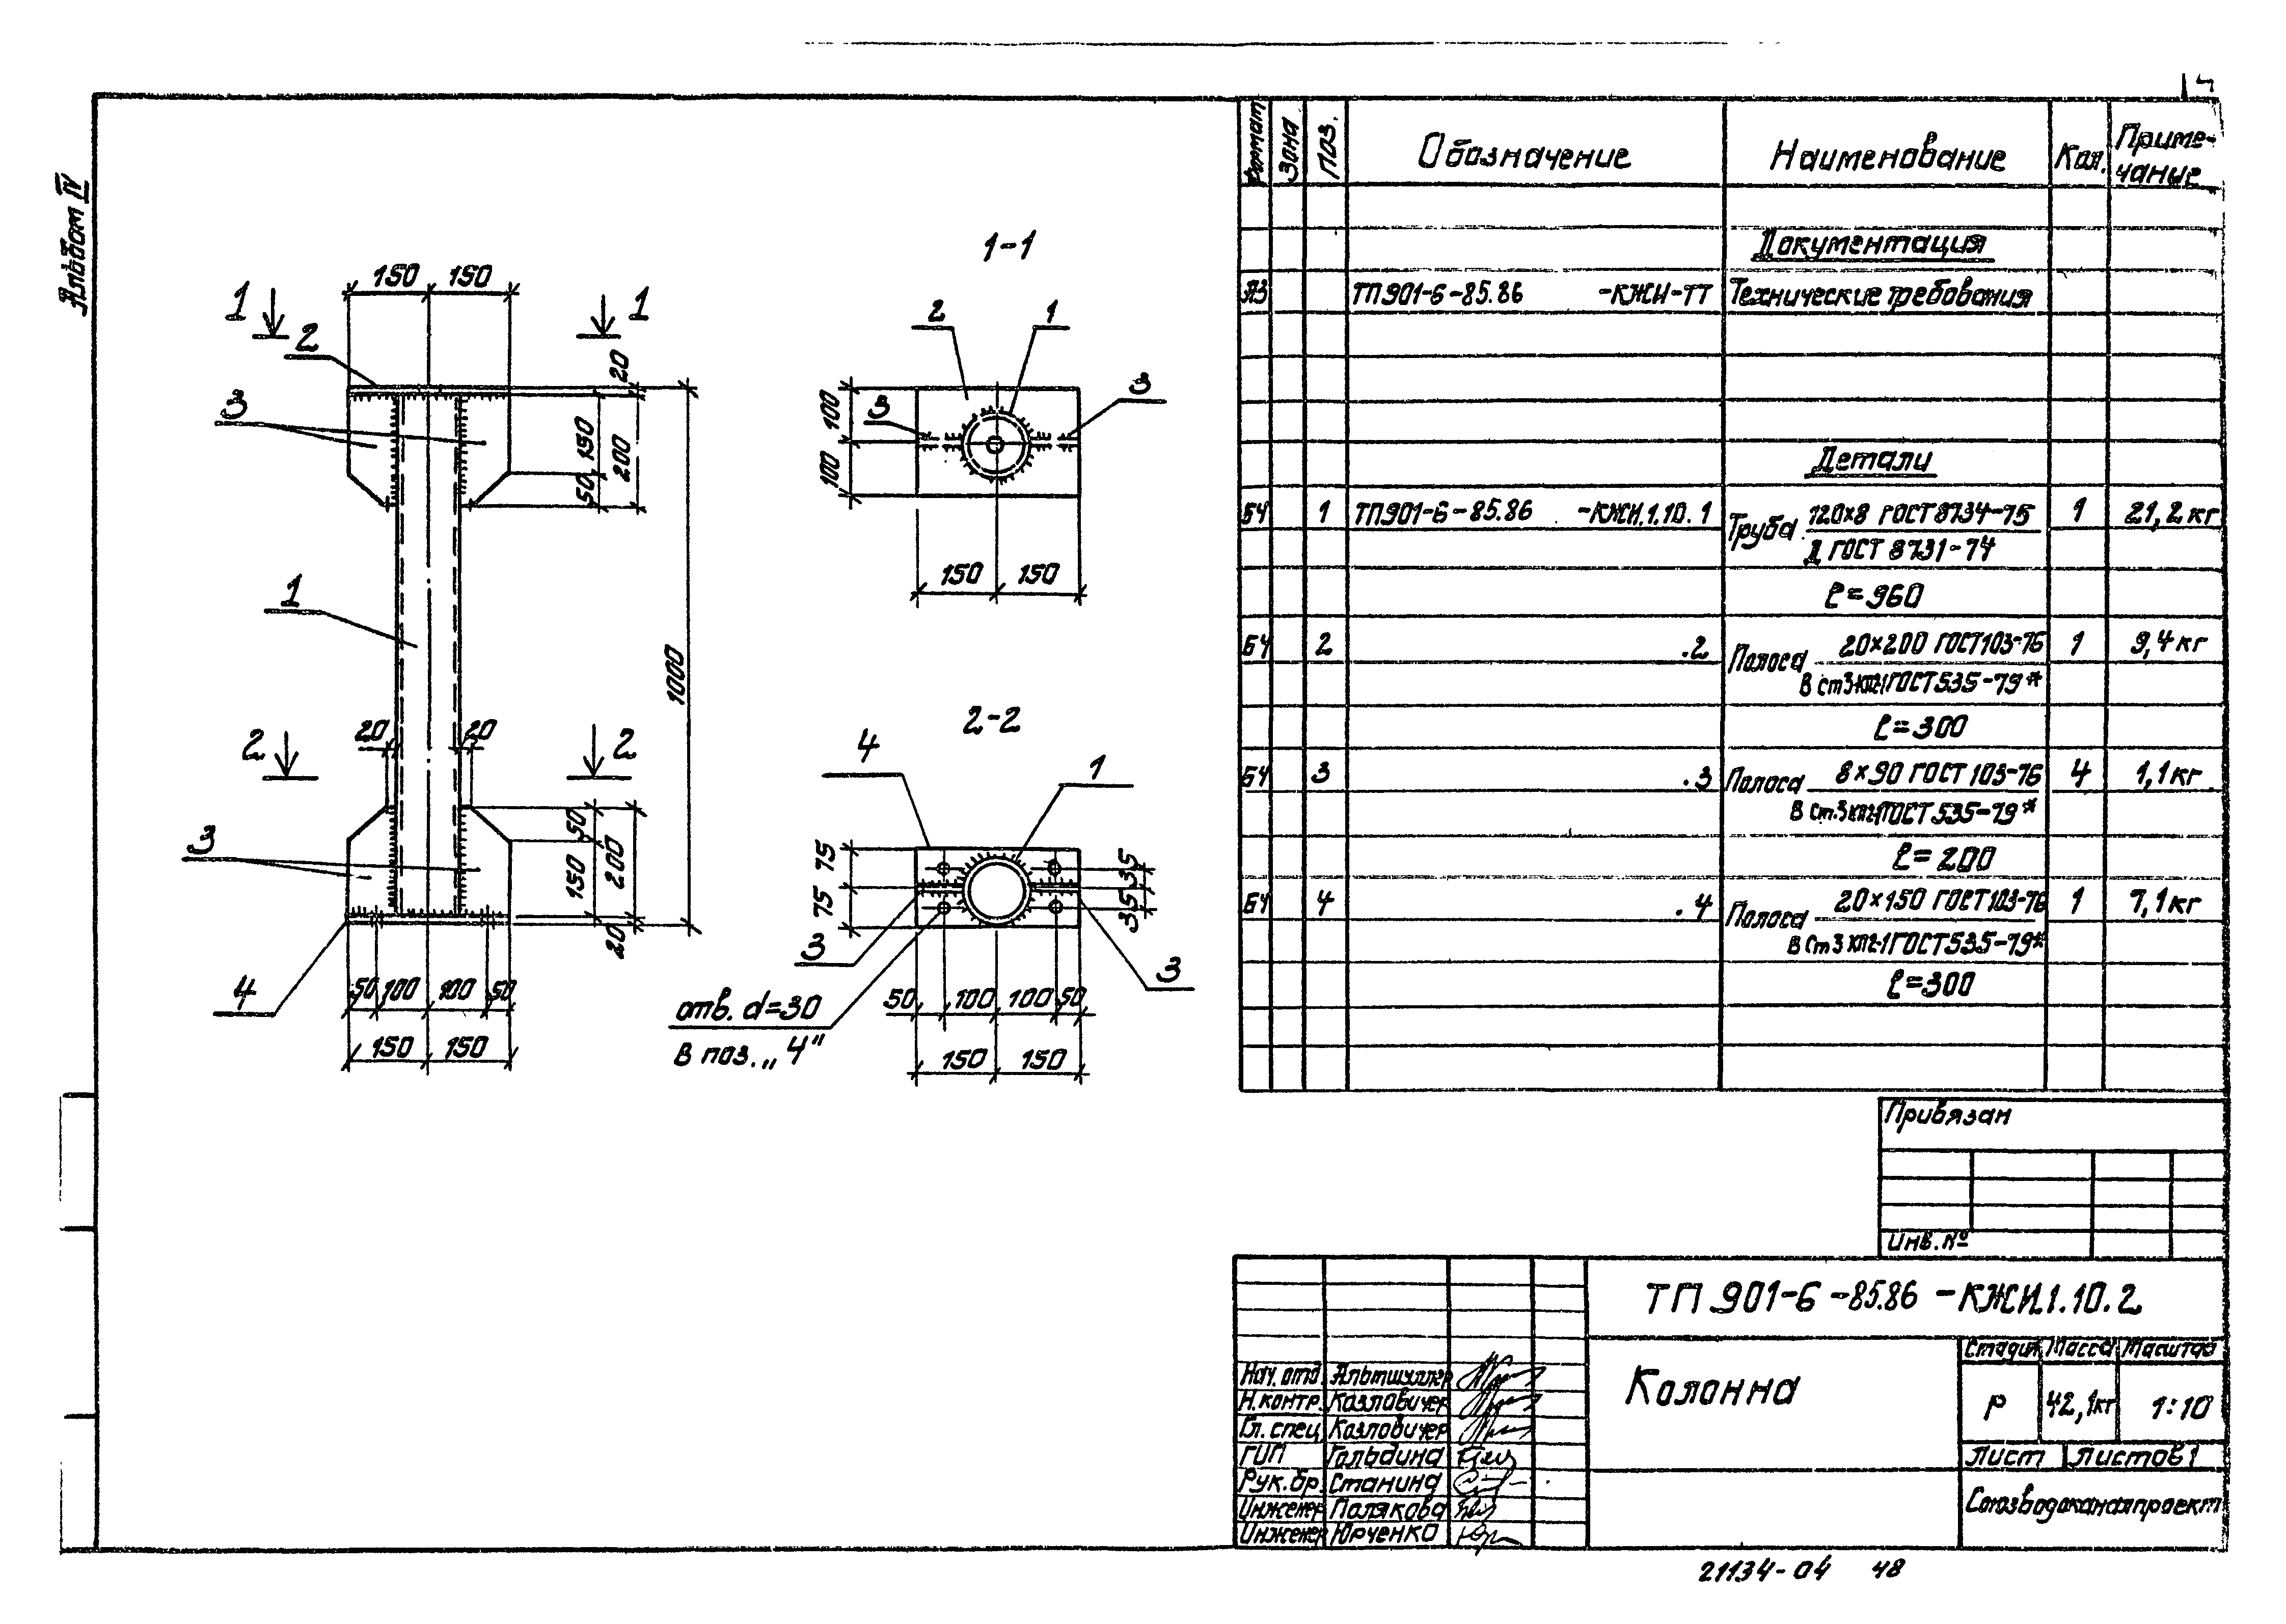 Альбом IV
150 150
1 1
2
20
3
150
200
50
1
1000
20 20
2 2
50
3
150
200
20
4
50 100 100 50
150 150
1-1
2 1
3
3
100
100
150 150
2-2
4 1
75
75
35
35
3
3
50 100 100 50
отв. d=30
в поз. „4"
150 150
Формат Зона Поз. Обозначение Наименование Кол. Приме-
чание
Документация
А3 ТП901-6-85.86 -КЖИ-ТТ Технические требования
Детали
БЧ 1 ТП901-6-85.86 -КЖИ.1.10.1 Труба 120×8 ГОСТ 8734-75 1 21,2 кг
Д ГОСТ 8731-74
ℓ=960
БЧ 2 .2 Полоса 20×200 ГОСТ103-76 1 9,4 кг
В Ст3кп2-1 ГОСТ535-79*
ℓ=300
БЧ 3 .3 Полоса 8×90 ГОСТ 103-76 4 1,1 кг
В Ст.3кп2-1 ГОСТ 535-79*
ℓ=200
БЧ 4 .4 Полоса 20×150 ГОСТ103-76 1 7,1 кг
В Ст3 кп2-1 ГОСТ535-79*
ℓ=300
Привязан
Инв. №
ТП 901-6-85.86 -КЖИ.1.10.2
Колонна
Стадия Масса Масштаб
Р 42,1кг 1:10
Лист Листов 1
Союзводоканалпроект
Нач. отд. Альтшуллер
Н.контр. Казлавичер
Гл. спец. Казловичер
ГИП Гольдина
Рук. бр. Станина
Инженер Полякова
Инженер Юрченко
21134-04 48